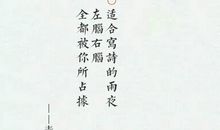 適合寫詩的雨夜
左腦右腦
全都被你所占據